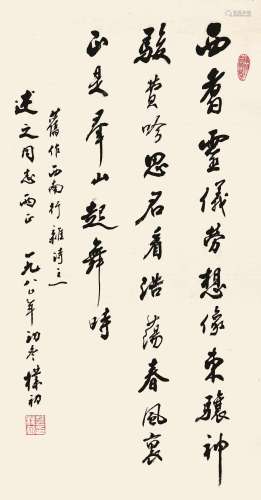 西看靈儀勞想像東驤神
駿費吟思君看浩蕩春風裏
正是群山起舞時
舊作西南行雜詩之一
述之同志両正 一九八〇年初冬樸初